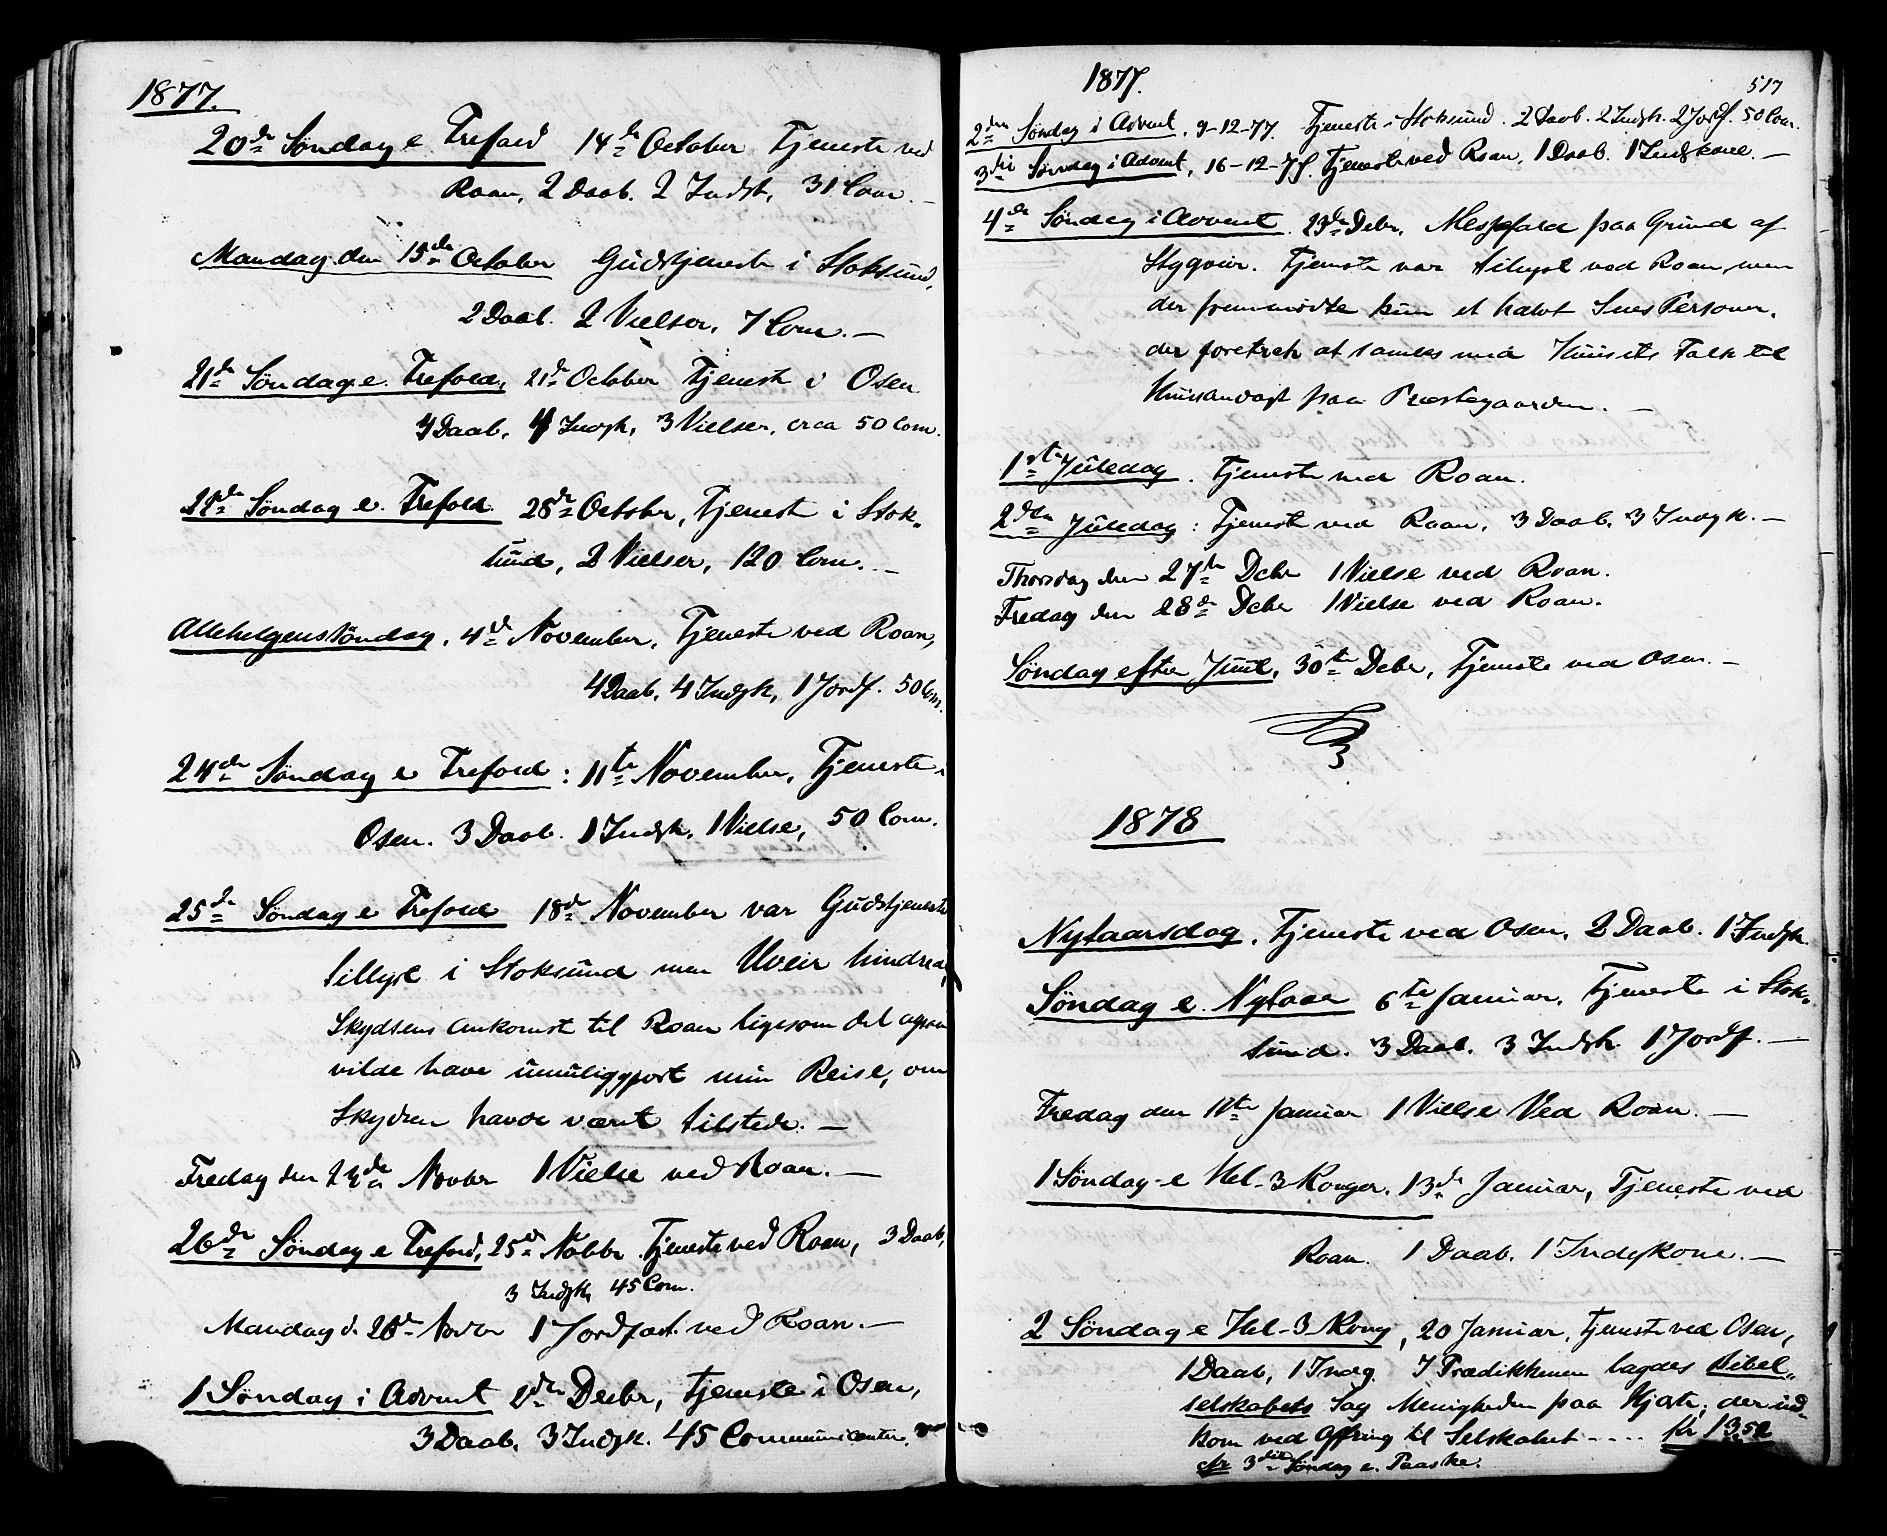 1877.
20de Søndag e Trefold 14de October Tjeneste ved
Roan, 2 Daab. 2 Indgk, 31 Com. —
Mandag den 15de October Gudstjeneste i Stoksund,
2 Daab. 2 Vielser, 7 Com. —
21de Søndag e. Trefold, 21de October Tjeneste i Osen
4 Daab, 4 Indgk, 3 Vielser, circa 50 Com.
22de Søndag e. Trefold. 28de October, Tjeneste i Stok-
sund, 2 Vielser, 120 Com. —
Allehelgenssöndag, 4de November, Tjeneste ved Roan,
4 Daab, 4 Indgk, 1 Jordf. 50 Com.
24de Søndag e Trefold: 11te November, Tjeneste i
Osen. 3 Daab. 1 Indgk, 1 Vielse, 50 Com.
25de Søndag e Trefold 18de November var Gudstjeneste
tillyst i Stoksund men Uveir hindrede
Skydsens Ankomst til Roan ligesom det ogsaa
vilde have umuliggjort min Reise, om
Skydsen havde været tilstede. —
Fredag den 23de Novbr 1 Vielse ved Roan. —
26de Søndag e Trefold, 25de Novbr Tjeneste ved Roan, 3 Daab,
3 Indgk, 45 Com.
Mandag d. 26de Novbr 1 Jordfæst. ved Roan. —
1 Søndag i Advent 2den Decbr, Tjeneste i Osen,
3 Daab, 3 Indgk. 45 Communicanter.
1877.
517
2den Søndag i Advent, 9-12-77. Tjeneste i Stoksund. 2 Daab. 2 Indgk. 2 Jordf. 50 Com.
3die Søndag i Advent, 16-12-77. Tjeneste ved Roan, 1 Daab. 1 Indgkone. —
4de Søndag i Advent. 23de Debr, Messefald paa Grund af
Stygveir. Tjeneste var tillyst ved Roan, men
der fremmødte kun et halvt Snes Personer,
der foretrak at samles med Huusets Folk til
Huusandagt paa Præstegaarden. —
1ste Juledag. Tjeneste ved Roan.
2den Juledag: Tjeneste ved Roan, 3 Daab, 3 Indgk. —
Thorsdag den 27de Debr 1 Vielse ved Roan.
Fredag den 28de Debr 1 Vielse ved Roan.
Søndag efter Juul, 30te Debr, Tjeneste ved Osen. —
1878
Nytaarsdag, Tjeneste ved Osen, 2 Daab. 1 Indgk.
Søndag e. Nytaar 6te Januar, Tjeneste i Stok-
sund. 3 Daab. 3 Indgk. 1 Jordf. —
Fredag den 11te Januar 1 Vielse Ved Roan. —
1 Søndag e Hel-3 Konger, 13de Januar, Tjeneste ved
Roan. 1 Daab. 1 Indgkone. —
2 Søndag e Hel-3-Kong, 20 Januar, Tjeneste ved Osen,
1 Daab, 1 Indg. I Prædikkenen lagdes Bibel-
selskabets Sag Menigheden paa Hjerte; der ind-
kom ved Offring til Selskabet - - - - kr 13,52
3die Søndag e. Paaske.